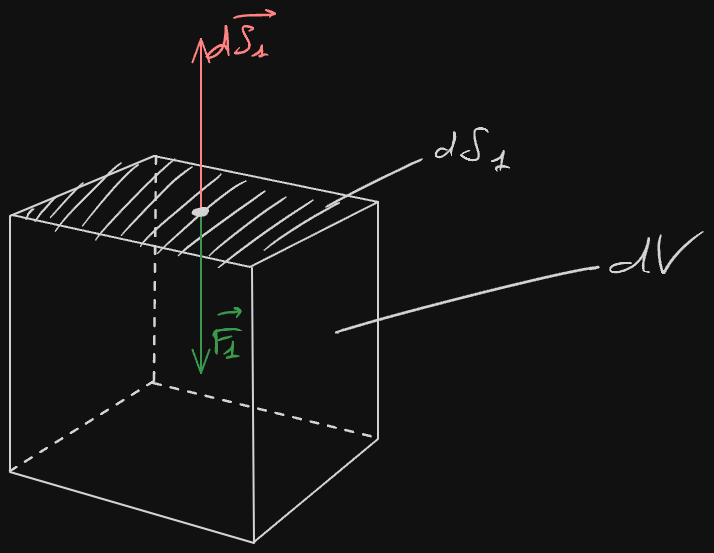 dS₁
dS₁
dV
F₁